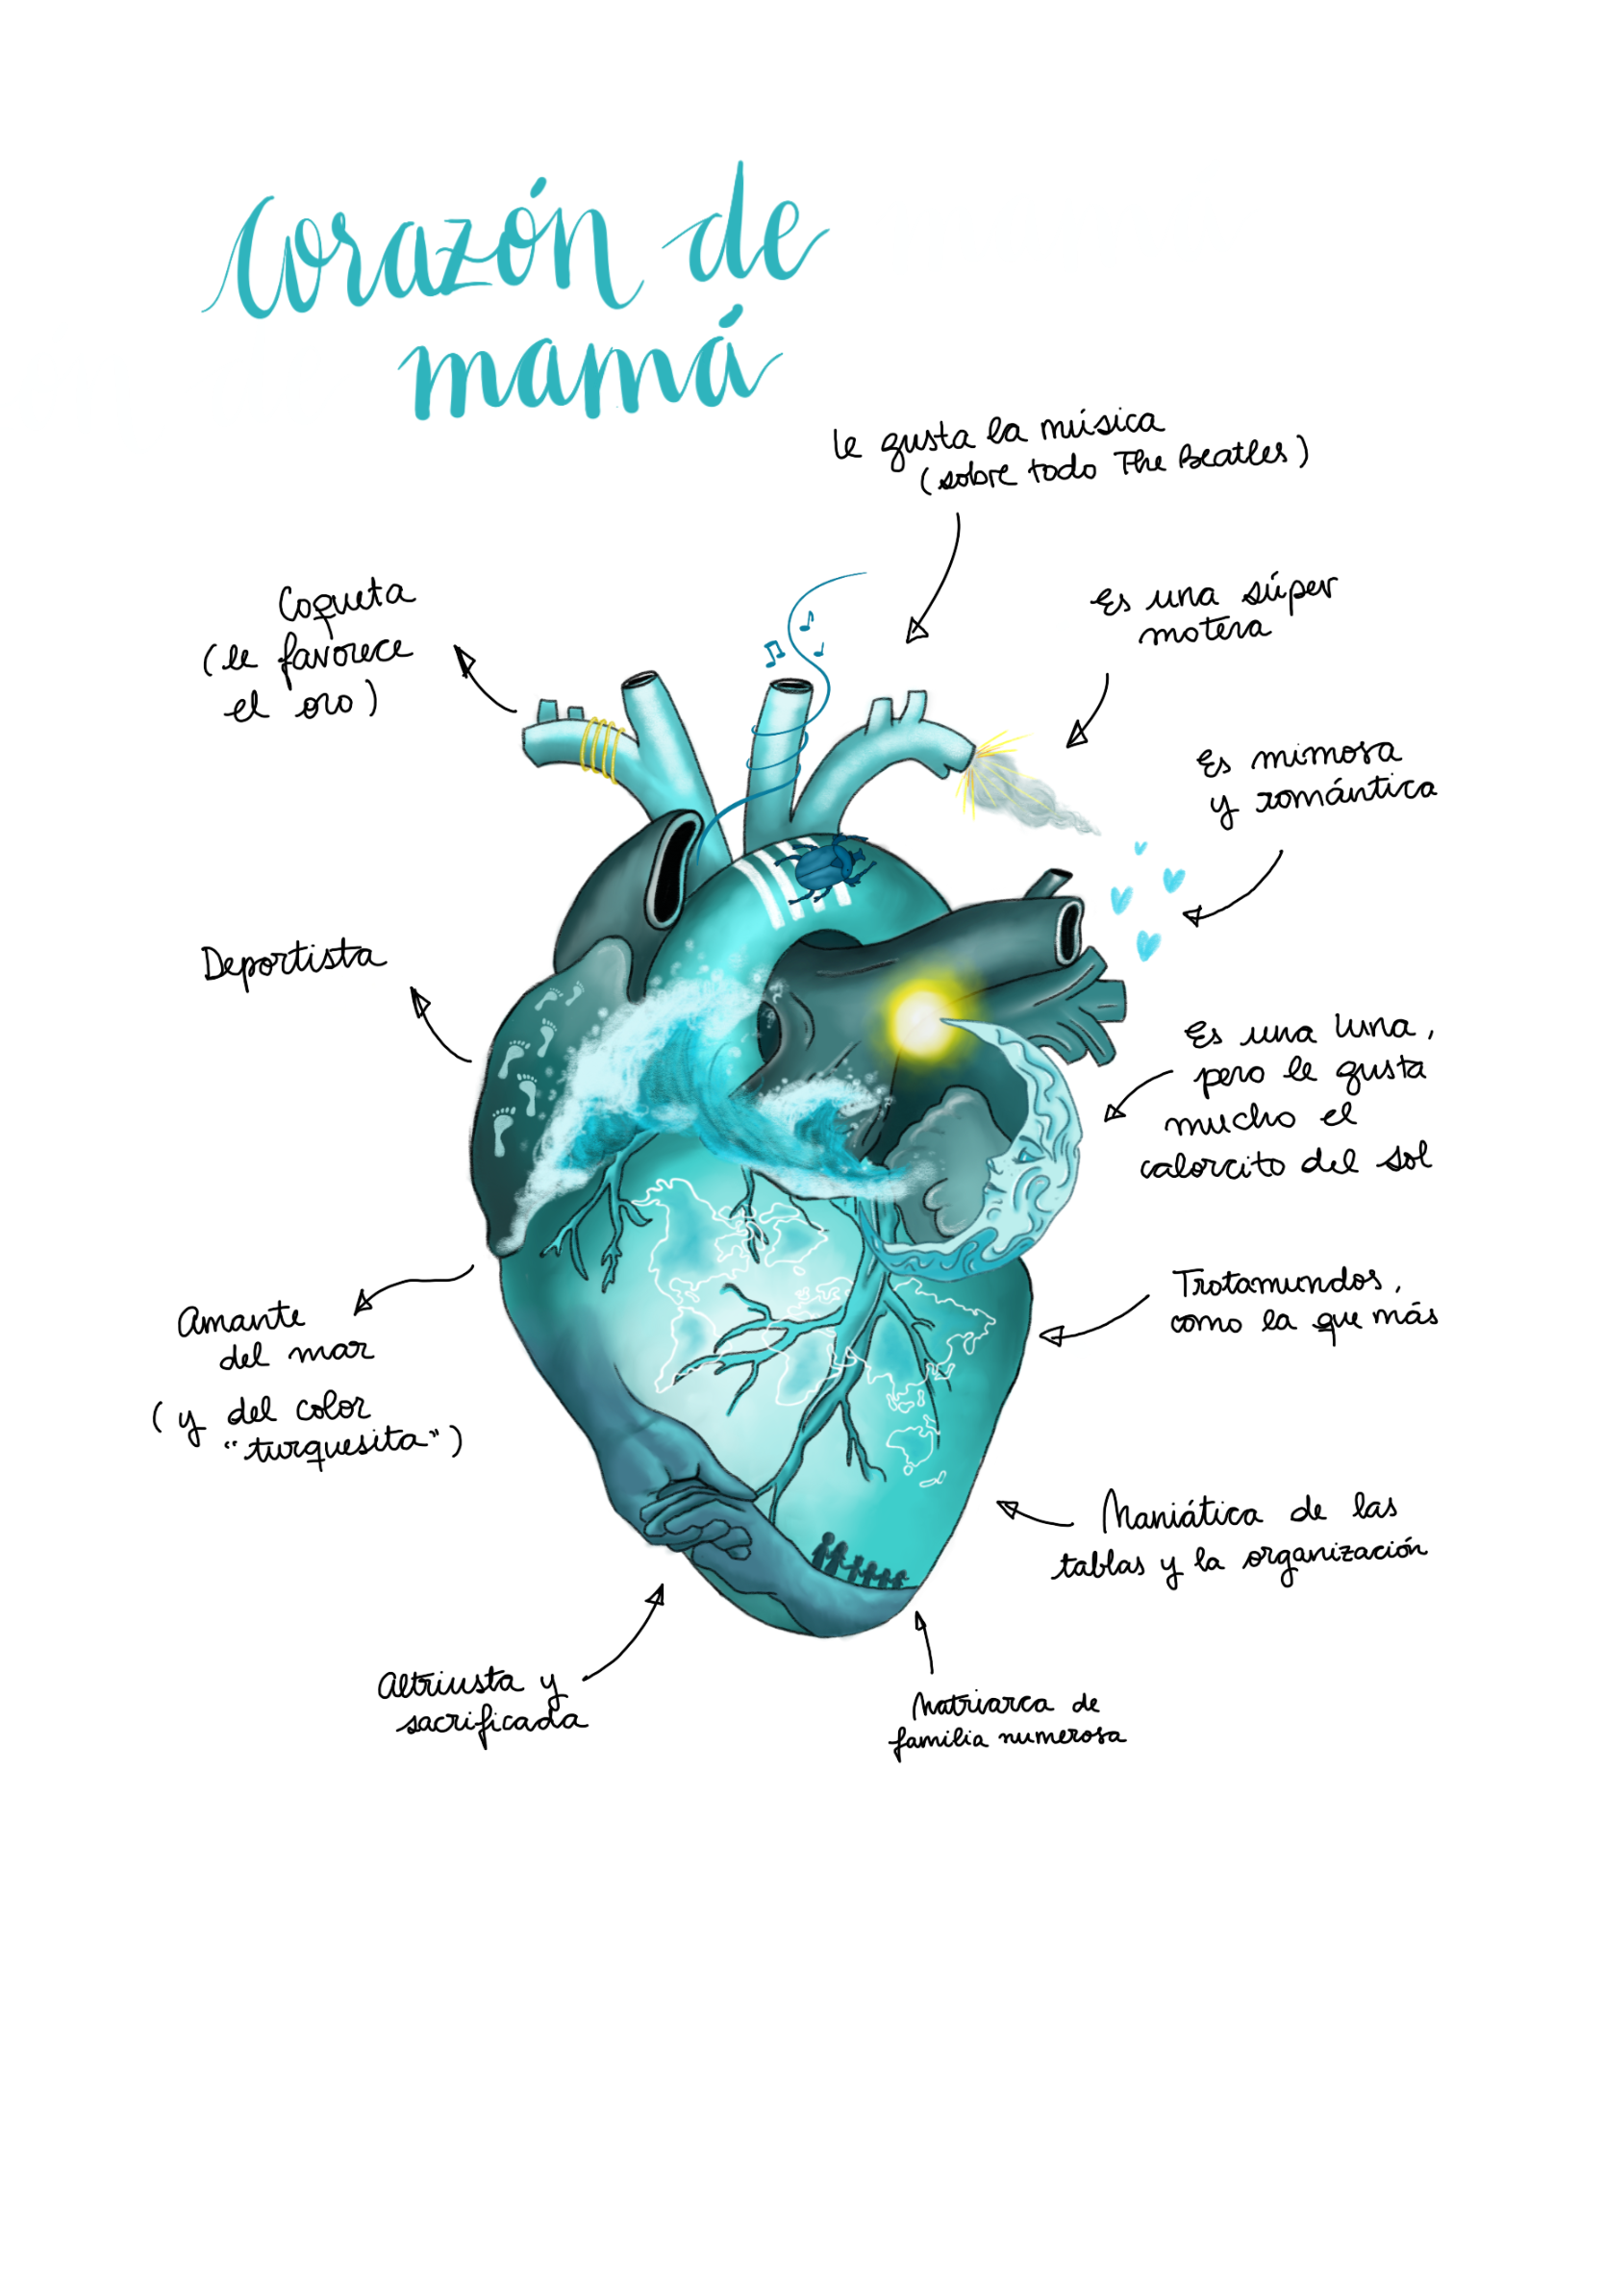 Corazón de
mamá
le gusta la música
(sobre todo The Beatles)
Coqueta
(le favorece
el oro)
Es una súper
motera
Es mimosa
y romántica
Deportista
Es una luna,
pero le gusta
mucho el
calorcito del sol
Amante
del mar
(y del color
"turquesita")
Trotamundos,
como la que más
Maniática de las
tablas y la organización
Altriusta y
sacrificada
Matriarca de
familia numerosa